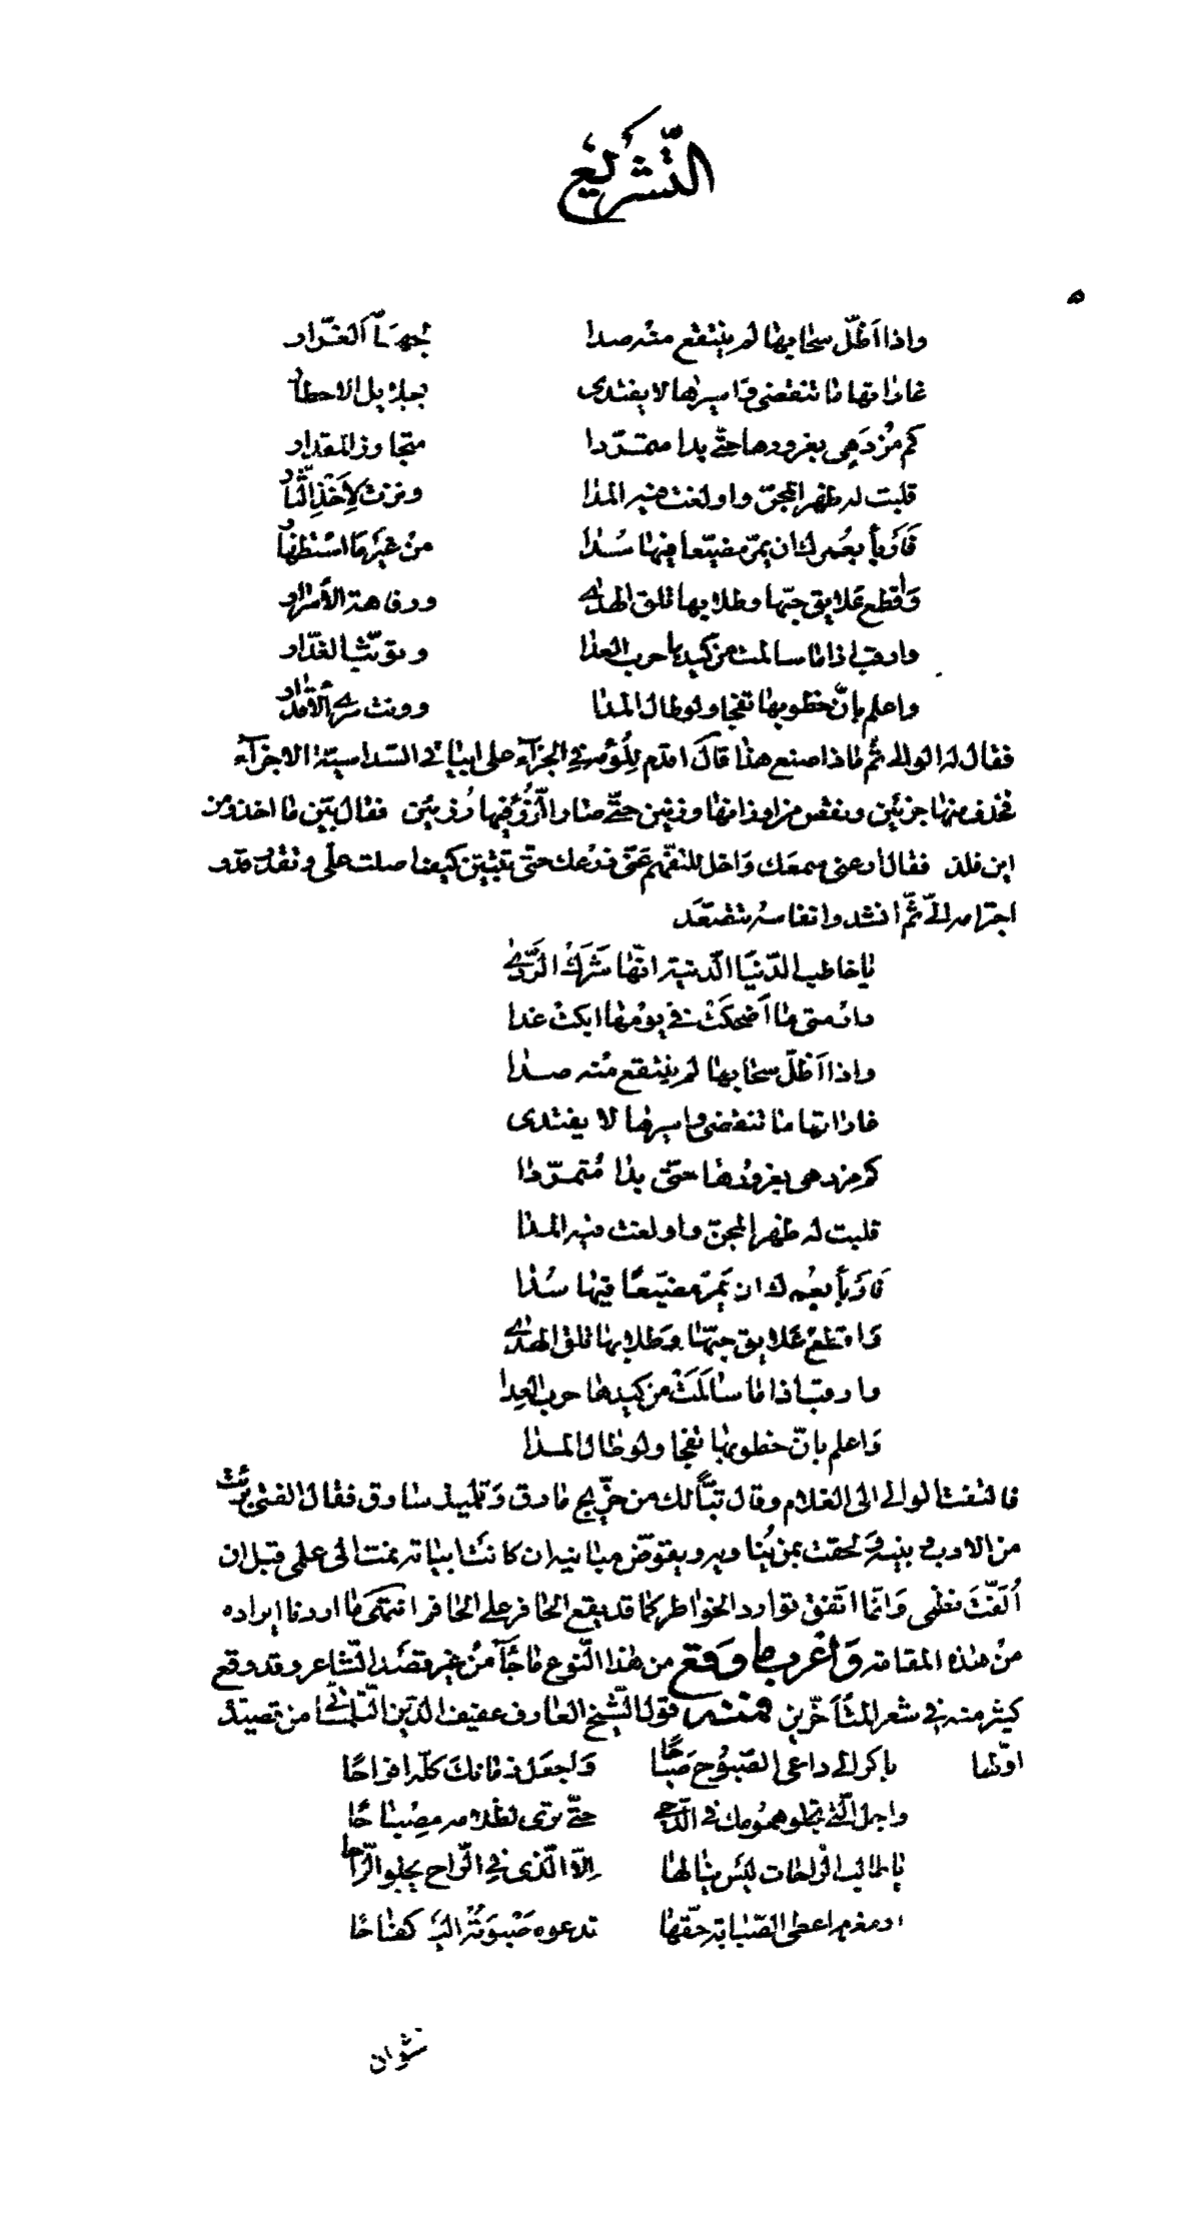 التّشريع
واذا اَظلّ سحابها لم ينتقع منه صدا جهَامه الغرّار
غاراتها ما تنقضى واسيرها لا يفتدى بجلايل الاخطار
كم مُزدَهِى بغرورها حتّى بدا متمرّدا متجاوز المقدار
قلبت له ظهر المجنّ واولغت فيه المدا ونزت لِاَخْذِ الثّار
فَارْبأ بعُمرك ان يمرّ مضيّعا فيها سُدا منْ غيْرِ مَا اسْتظهار
وَاقطع عَلايق حبّها وطلابها تلق الهدى ورفاهة الأسرار
وارقب اذا ما سالمت من كيدها حرب العدا وتوثّب الغدّار
واعلم بانّ خطوبها تفجا ولو طال المدا وونت سرى الأقدار
فقال له الوالى ثُم ماذا صنع هذا قالَ اقدم لِلُؤْمه فى الجزآء على ابياتى السّداسيّة الاجزآء
فحذف منها جزئَين ونقص من اوزانها وزنين حتّى صار الرُّزْءُ فيها رُزئين فقال بيّن ما اخذ ومن
اين فلذ فقال ارعنى سمعَك وَاخل للتفهّم عنّى ذرعك حتّى تتبيّن كيف اصلت علىّ وتقدر قدر
اجترامه الىّ ثمّ انشد وانفاسه تتصعّد
يا خاطب الدّنيَا الدّنية انّها شَرَكُ الرّدَى
دار متى ما اَضحكَتْ فى يومها ابكت غدا
واذا اَظلّ سحابها لم ينتقع منه صدا
غاراتها ما تنقضى واسيرها لا يفتدى
كم مزدهى بغرورها حتّى بدا مُتمرّدا
قلبت له ظهر المجنّ واولغت فيه المدا
فَارْبأ بعُمرك ان يَمرّ مضيّعًا فيها سُدا
وَاقطعْ عَلايق حبّها وَطلابها تلق الهدى
وارقب اذا ما سَالَمَتْ من كيدها حرب العِدا
وَاعلم بانّ خطوبها تفجا ولو طال المدا
فالتفت الوالى الى الغلام وقال تبًّا لك من خرّيج مارق وَتلميذ سارق فقال الفتى برئت
من الادب وبنيه وَلحقت بمن يُناويه ويقوّض مبانيه ان كانَت ابياته نمت الى علمى قبل ان
اُلّفتَ نظمى وَانّما اتّفق توارد الخواطر كما قد يقع الحافر على الحافر انتهَى ما اردنا ايراده
منْ هذه المقامة وَأغرب ما وَقع من هذا النّوع ما جَآءَ منْ غير قصْد الشّاعر وقد وقع
كثير منه فى شعر المتأخّرين فمنه قول الشّيخ العارف عفيف الدّين التلمسانى من قصيدة
اوّلها باكر الى داعى الصّبُوْحِ صَباحًا وَاجعَل زمانكَ كلّه افراحًا
واجل الّتى تجلو همُومك فى الدّجى حتّى ترى لظلامه مصْباحًا
يا طالب الرّاحات ليْس ينالها الّا الّذى فى الرّاح يجلو الرّاحا
اومغرم اعطى الصّبابة حقّها تدعوه صَبْوَتُهُ اليْه كفاحًا
نشوان